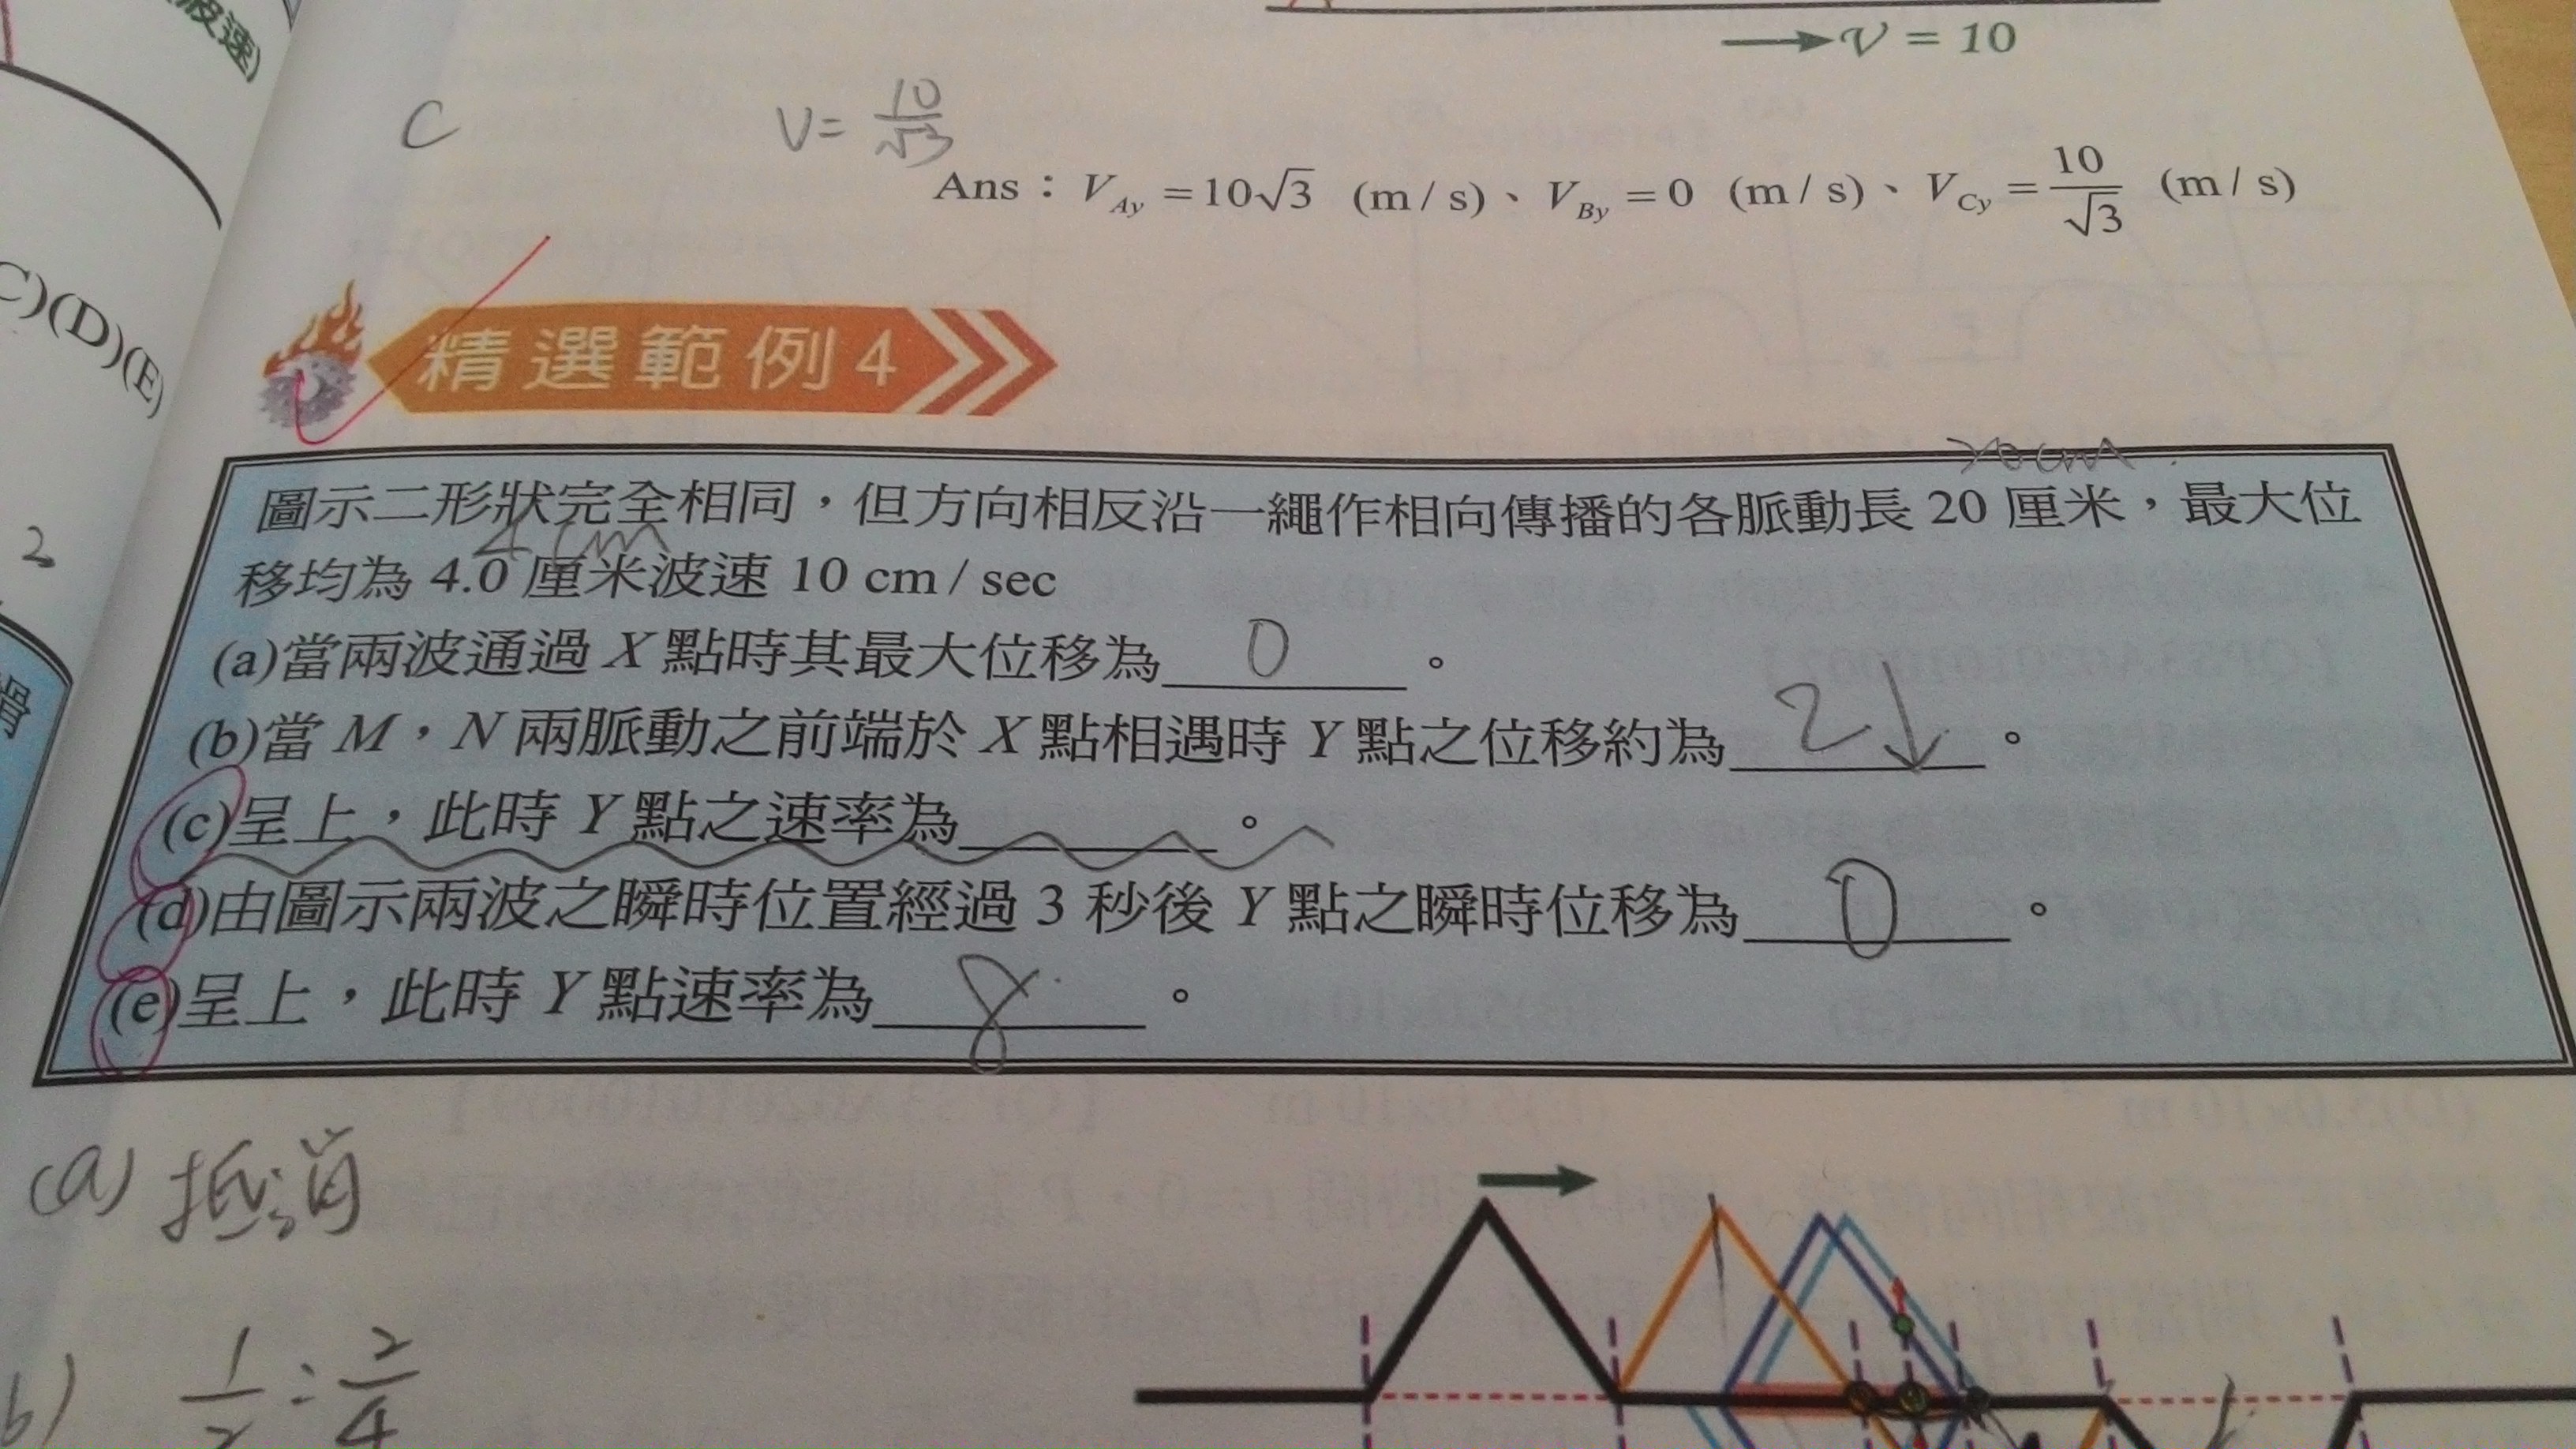 波速)
→ V = 10
C
V = 10/√3
Ans：V_Ay = 10√3 (m / s)、V_By = 0 (m / s)、V_Cy = 10/√3 (m / s)
C)(D)(E)
精選範例 4
20 cm
圖示二形狀完全相同，但方向相反沿一繩作相向傳播的各脈動長 20 厘米，最大位
4 cm
移均為 4.0 厘米波速 10 cm / sec
2
(a)當兩波通過 X 點時其最大位移為 0 。
(b)當 M，N 兩脈動之前端於 X 點相遇時 Y 點之位移約為 2↓ 。
(c)呈上，此時 Y 點之速率為＿＿＿。
(d)由圖示兩波之瞬時位置經過 3 秒後 Y 點之瞬時位移為 0 。
(e)呈上，此時 Y 點速率為 8 。
(a) 抵消
b) 1/2 = 2/4